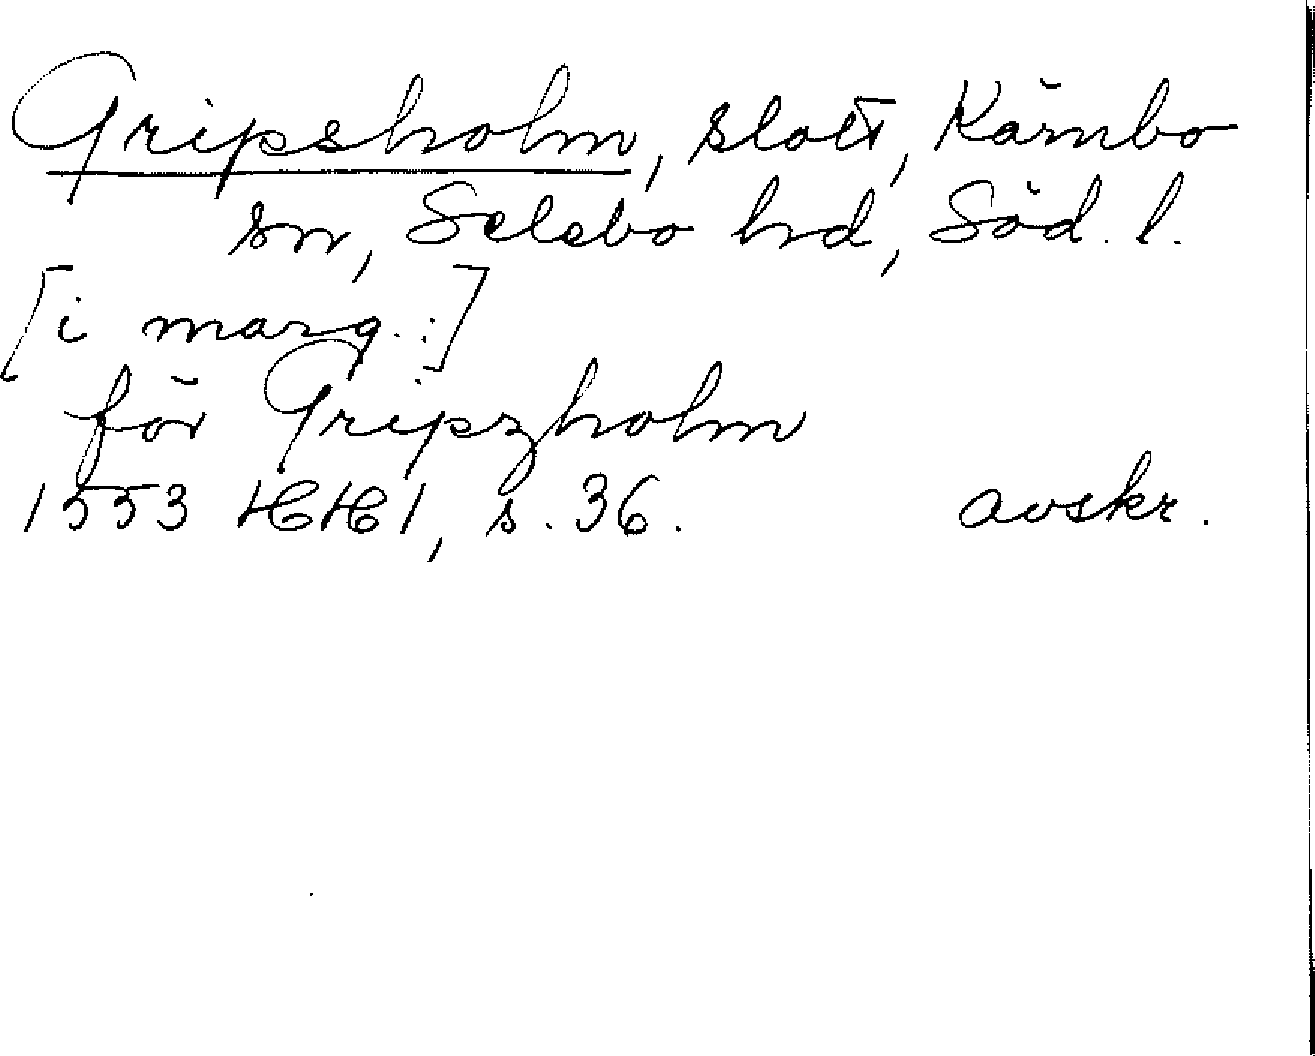 Gripsholm, slott, Kärnbo
sn, Selebo hd, Söd. l.
[i marg.:]
för Gripzholm
1553 HH 1, s. 36. avskr.